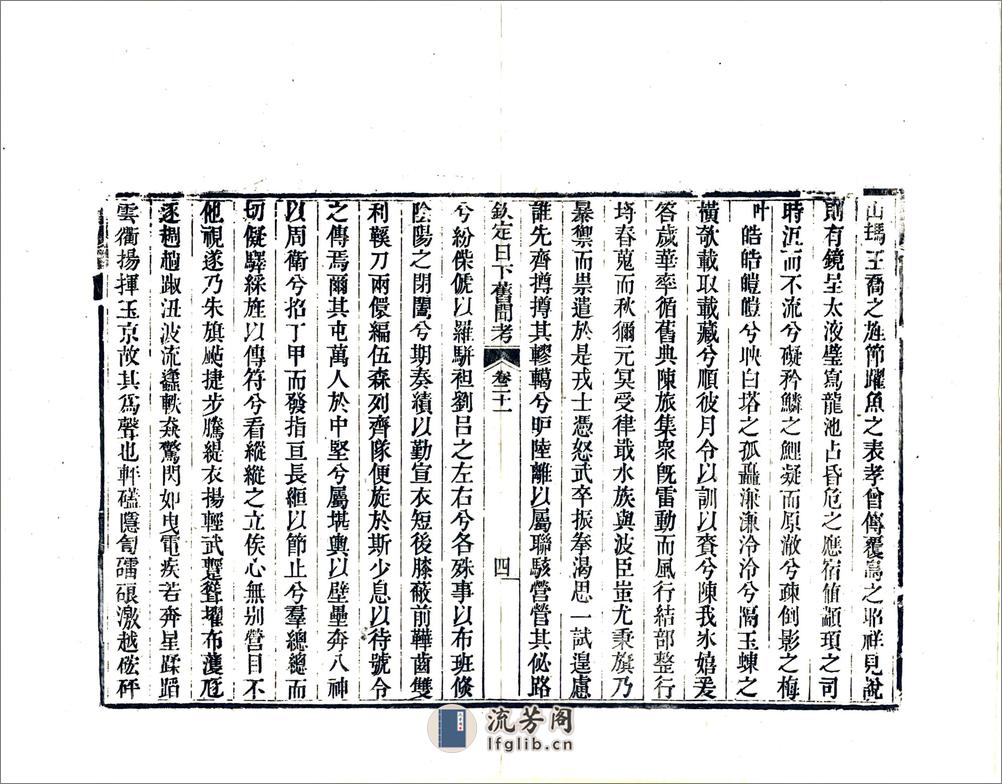 山馮王喬之舄節躍魚之表孝曾傳覆鳥之昭祥見說
則有鏡呈太液璧寫龍池占昏危之應宿値顓頊之司
時沍而不流兮礙矜鱗之鯉凝而原澈兮疎倒影之梅
叶皓皓皚皚兮映白塔之孤矗溓溓泠泠兮隔玉蝀之
橫欹載取載藏兮順彼月令以訓以賚兮陳我氷嬉爰
答歲華率循舊典陳旅集衆旣雷動而風行結部整行
埼春蒐而秋獮元冥受律戢水族與波臣蚩尤秉旗乃
暴禦而祟遣於是戎士憑怒武卒振拳渴思一試遑慮
誰先齊撙撙其轇轕兮㫕陸離以屬聯駭營營其佖路
欽定日下舊聞考 卷二十一 四
兮紛傑俿以羅騈袒劉呂之左右兮各殊事以布班倏
陰陽之閉闓兮期奏績以勤宣衣短後膝蔽前鞾齒雙
利鞵刀兩儇編伍森列齊隊便旋於斯少息以待號令
之傳焉爾其屯萬人於中堅兮屬堪輿以壁壘奔八神
以周衛兮招丁甲而發指亘長緪以節止兮羣總總而
切儗驛綵旌以傳符兮看縱縱之立俟心無别營目不
他視遂乃朱旗颭捷步騰緹衣揚輕武躉聳擢布濩厖
逐趫趫踧沑波流蠭軼猋驚閃如曳電疾若奔星蹂蹈
雲衢揚揮玉京故其爲聲也軒礚隱訇礌硠激越砿砰
流芳阁
lfglib.cn